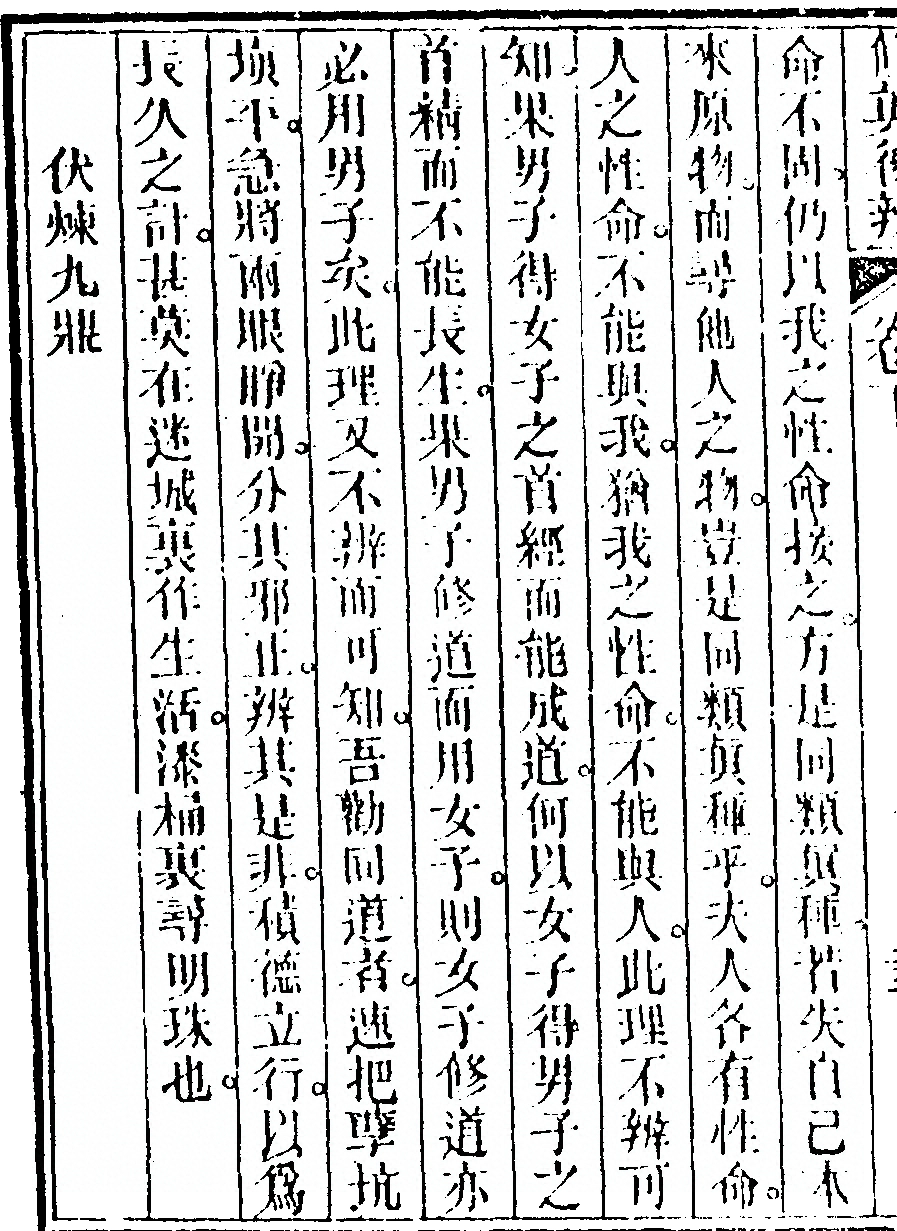 修真後辨 卷
命不固仍以我之性命接之方是同類真種若失自己本
來原物而尋他人之物豈是同類真種乎夫人各有性命
人之性命不能與我猶我之性命不能與人此理不辨可
知果男子得女子之首經而能成道何以女子得男子之
首精而不能長生果男子修道而用女子則女子修道亦
必用男子矣此理又不辨而可知吾勸同道者速把孽坑
填平急將兩眼睜開分其邪正辨其是非積德立行以爲
長久之計甚莫在迷城裏作生活漆桶裏尋明珠也
伏煉九鼎